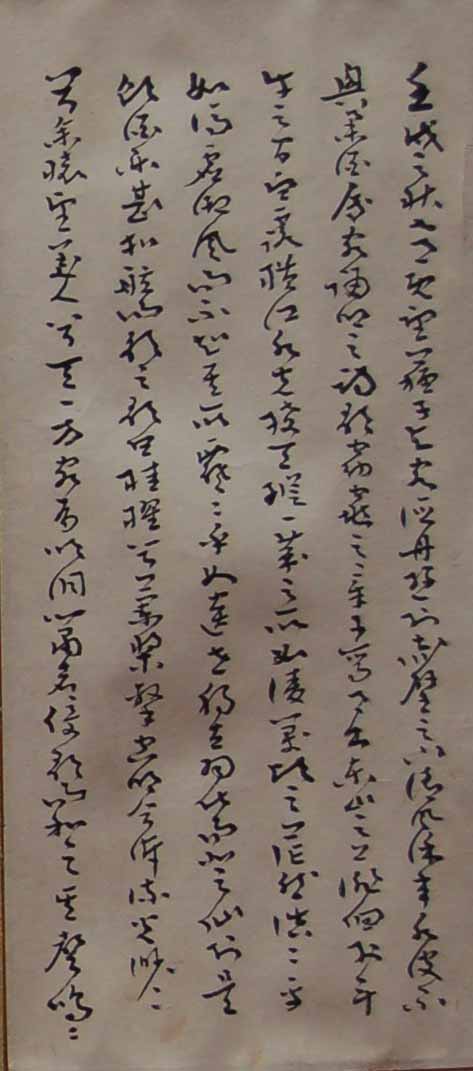 壬戌之秋七月既望蘇子與客泛舟遊於赤壁之下清風徐來水波不
興舉酒屬客誦明月之詩歌窈窕之章少焉月出東山之上徘徊於斗
牛之間白露橫江水光接天縱一葦之所如凌萬頃之茫然浩々乎
如馮虛御風而不知其所止飄々乎如遺世獨立羽化而登仙於是
飲酒樂甚扣舷而歌之歌曰桂櫂兮蘭槳擊空明兮泝流光渺々
兮余懷望美人兮天一方客有吹洞簫者倚歌而和之其聲嗚々